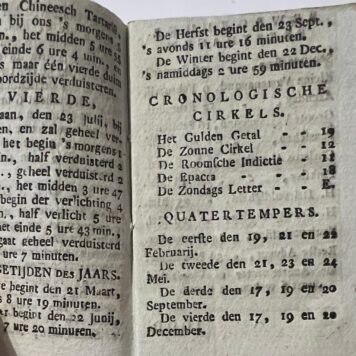 en Chineesch Tartarie,
n bij ons 's morgens 5
n., het midden 5 ure 58
einde 6 ure 4 min., en
s maar één vierde duim
oordzijde verduisteren.
VIERDE,
aan, den 23 julij, bij
en, en zal geheel ver-
het begin 's morgens 1
n., half verduisterd 2
., geheel verduisterd
., het midden 3 ure 47
begin der verlichting 4
in., half verlicht 5 ure
het einde 5 ure 43 min.,
gaat geheel verduisterd
ure 7 minuten.
GETIJDEN DES JAARS.
te begint den 21 Maart,
s 8 ure 19 minuten.
er begint den 22 Junij,
7 ure 20 minuten.
De Herfst begint den 23 Sept.,
's avonds 11 ure 16 minuten.
De Winter begint den 22 Dec.,
's namiddags 2 ure 59 minuten.
CRONOLOGISCHE
CIRKELS.
Het Gulden Getal - - 19
De Zonne Cirkel - - 12
De Roomsche Indictie - 11
De Epacta - - 18
De Zondags Letter - - E.
QUATERTEMPERS.
De eerste den 19, 21 en 22
Februarij.
De tweede den 21, 23 en 24
Mei.
De derde den 17, 19 en 20
September.
De vierde den 17, 19 en 20
December.